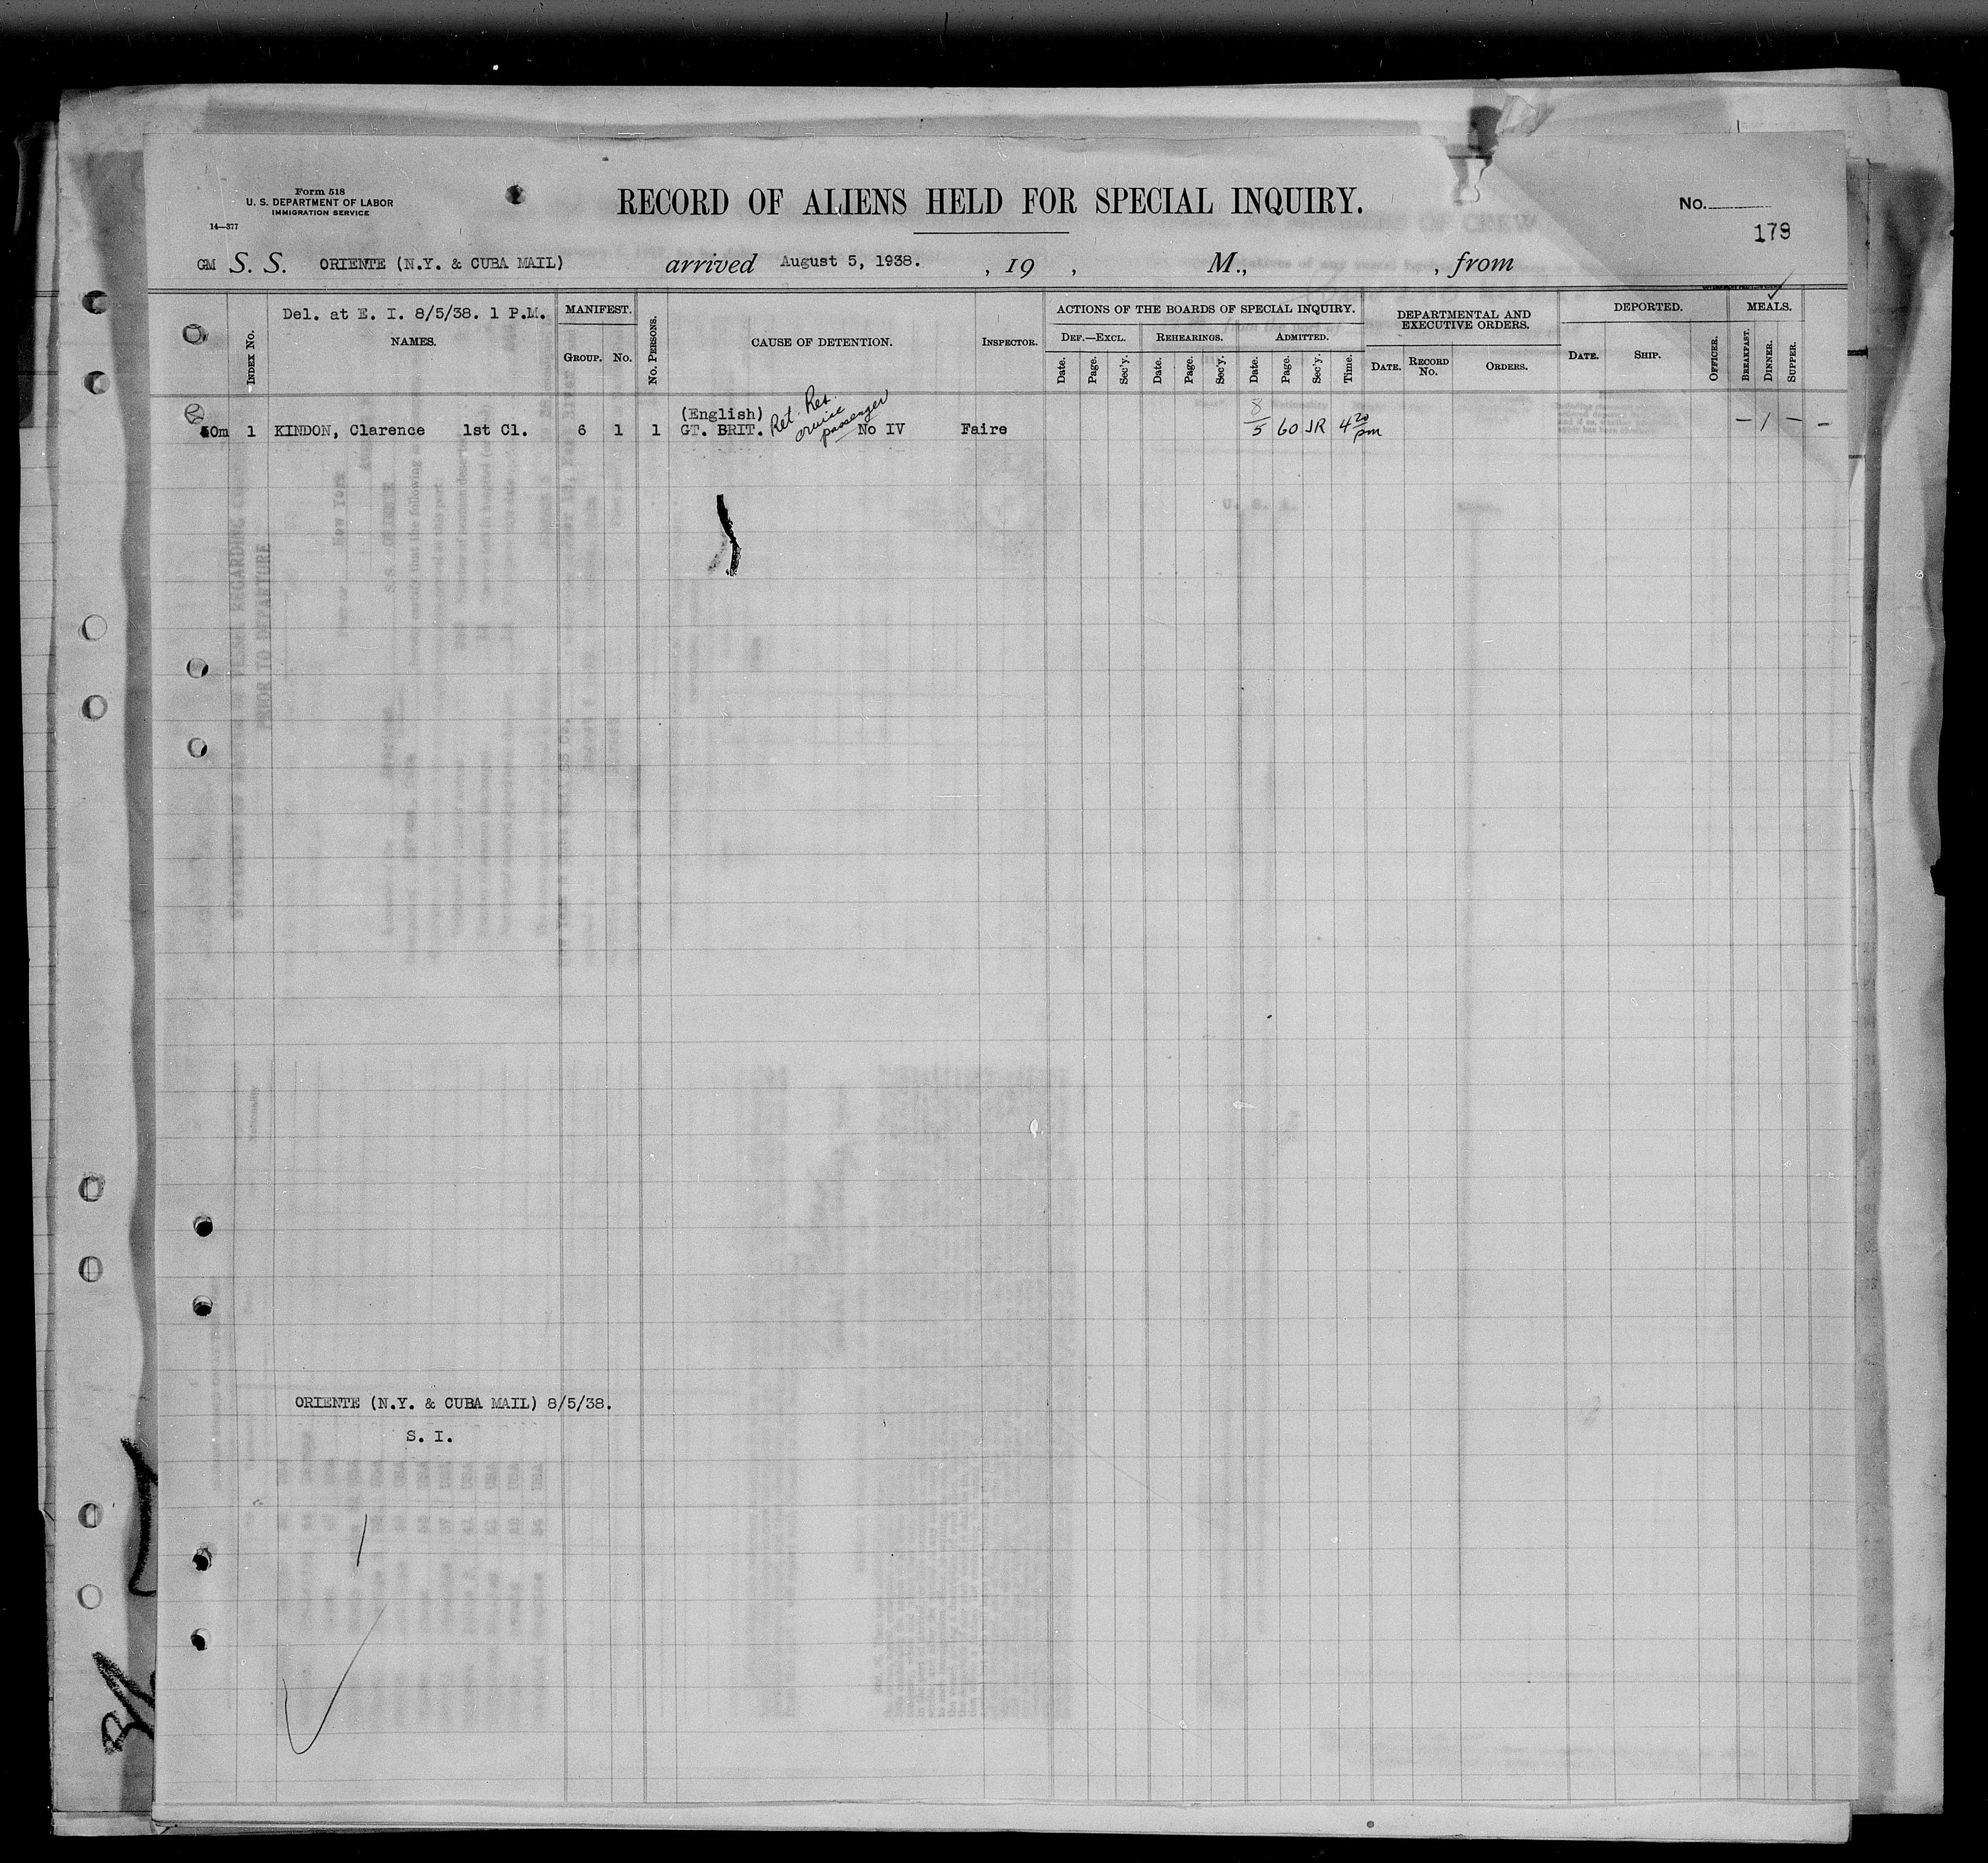 Form 518
U. S. DEPARTMENT OF LABOR
IMMIGRATION SERVICE
14—377
RECORD OF ALIENS HELD FOR SPECIAL INQUIRY.
No.
179
GM S. S. ORIENTE (N.Y. & CUBA MAIL) arrived August 5, 1938. , 19 , M., , from
Del. at E. I. 8/5/38. 1 P.M.
INDEX No.
NAMES.
MANIFEST.
GROUP. No.
No. PERSONS.
CAUSE OF DETENTION.
INSPECTOR.
ACTIONS OF THE BOARDS OF SPECIAL INQUIRY.
DEF.—EXCL. REHEARINGS. ADMITTED.
Date. Page. Sec'y. Date. Page. Sec'y. Date. Page. Sec'y. Time.
DEPARTMENTAL AND
EXECUTIVE ORDERS.
DATE. RECORD No. ORDERS.
DEPORTED.
DATE. SHIP. OFFICER.
MEALS.
BREAKFAST. DINNER. SUPPER.
(English) Ret. Res.
cruise
passenger
40m 1 KINDON, Clarence 1st Cl. 6 1 1 GT. BRIT. No IV Faire 8/5 60 JR 4 20 pm — 1 — —
ORIENTE (N.Y. & CUBA MAIL) 8/5/38.
S. I.
1